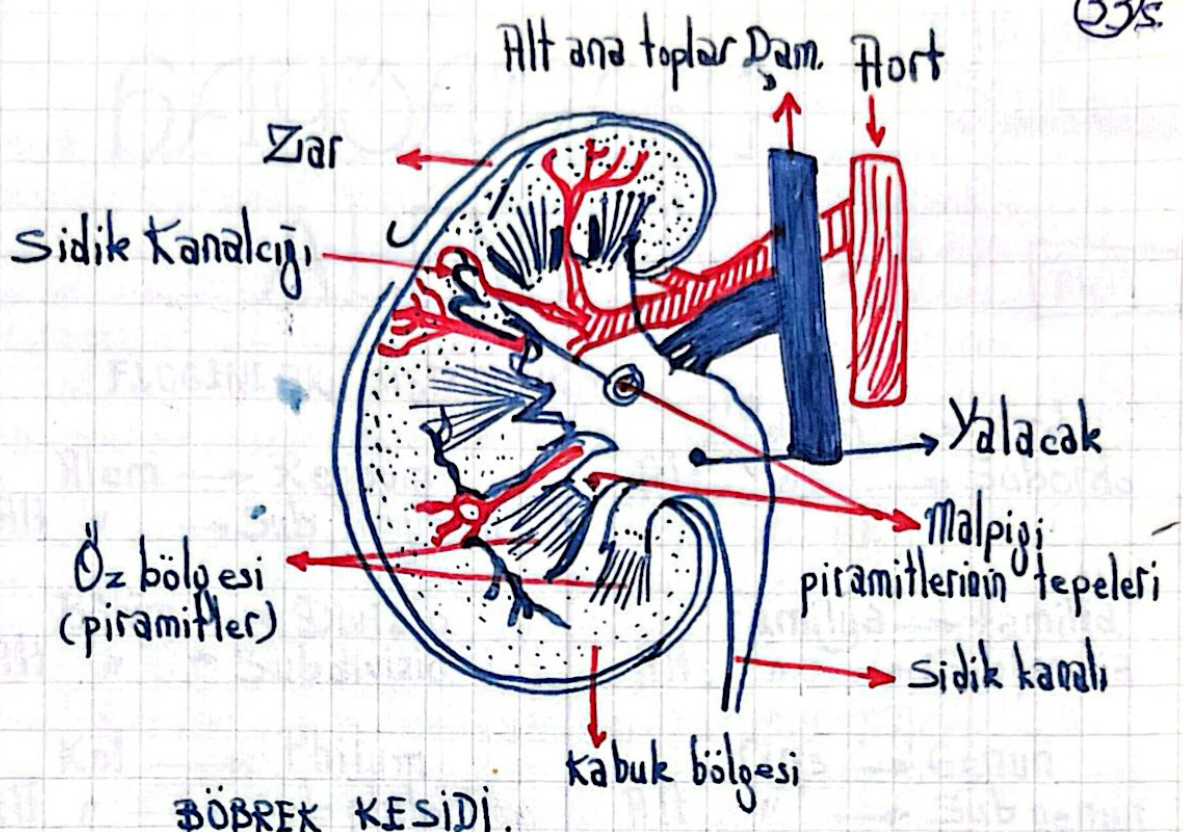 Alt ana toplar Dam. Aort
Zar
Sidik Kanalcığı
Yalacak
Malpigi
piramitlerinin tepeleri
Öz bölgesi
(piramitler)
Sidik kanalı
Kabuk bölgesi
BÖBREK KESİDİ.